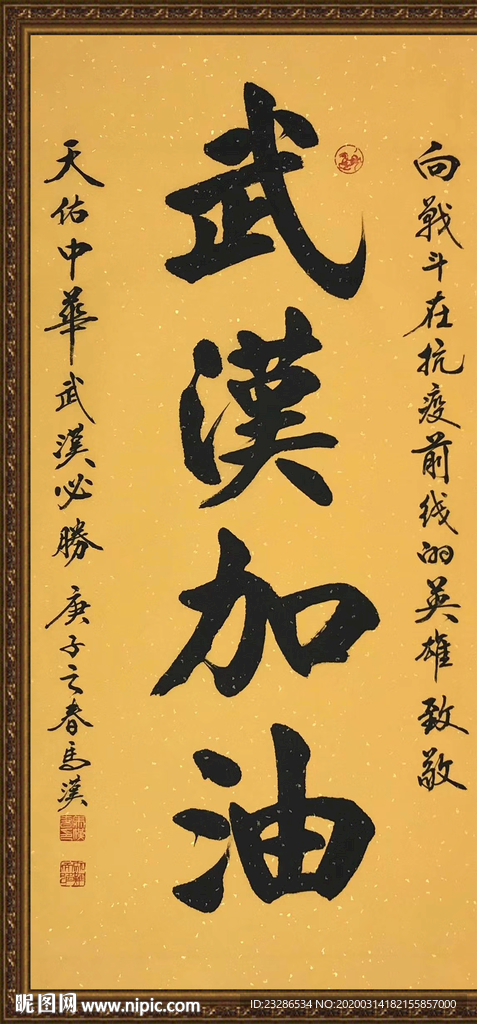 向戰斗在抗疫前线的英雄致敬
武漢加油
天佑中華武漢必勝 庚子之春馬漢
昵图网 www.nipic.com
ID:23286534 NO:20200314182155857000